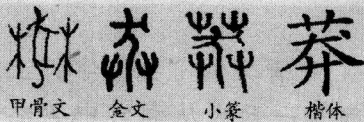 莽
甲骨文 金文 小篆 楷体